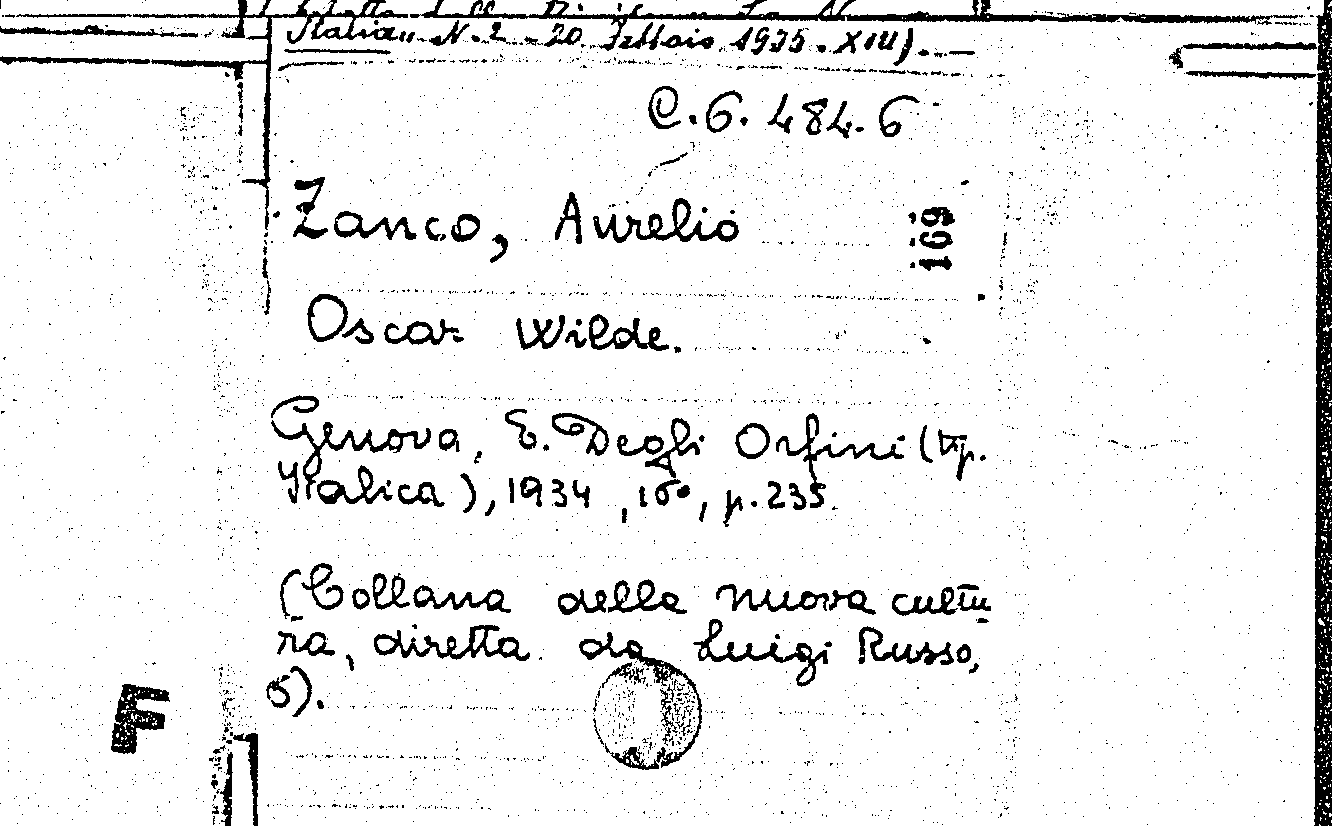 Italia„ N. 2 - 20 Febbraio 1935 - XIII). —
C.6.484.6
Zanco, Aurelio
169
Oscar Wilde.
Genova, E. Degli Orfini (tip.
Italica), 1934, 16°, p. 235.
(Collana della nuova cultu-
ra, diretta da Luigi Russo,
5).
F